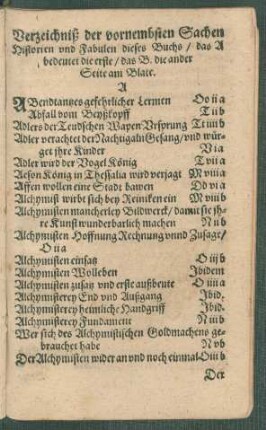 Verzeichniß der vornembsten Sachen
Historien vnd Fabulen dieses Buchs / das A
bedeutet die erste / das B. die ander
Seite am Blate.
A
ABendtantzes gefehrlicher Lermen Oo ii a
Abfall vom Beyßkopff T ii b
Adlers der Teudschen Wapen Vrsprung Tt iiii b
Adler verachtet der Nachtigaln Gesang / vnd wür-
get jhre Kinder V i a
Adler wird der Vogel König T vii a
Aeson König in Thessalia wird verjagt M viii a
Affen wollen eine Stadt bawen Dd vi a
Alchymist wirbt sich bey Reiniken ein M viii b
Alchymisten mancherley Bildwerck / damit sie jh-
re Kunst wunderbarlich machen N ii b
Alchymisten Hoffnung Rechnung vnnd Zusage /
O ii a
Alchymisten einsatz O ii b
Alchymisten Wolleben Ibidem
Alchymisten zusatz vnd erste außbeute O iiii a
Alchymisterey End vnd Außgang Ibid.
Alchymisterey heimliche Handgriff Ibid.
Alchymisterey Fundament N iii b
Wer sich des Alchymistischen Goldmachens ge-
brauchet habe N v b
Der Alchymisten wider an vnd noch einmal O iii b
Der